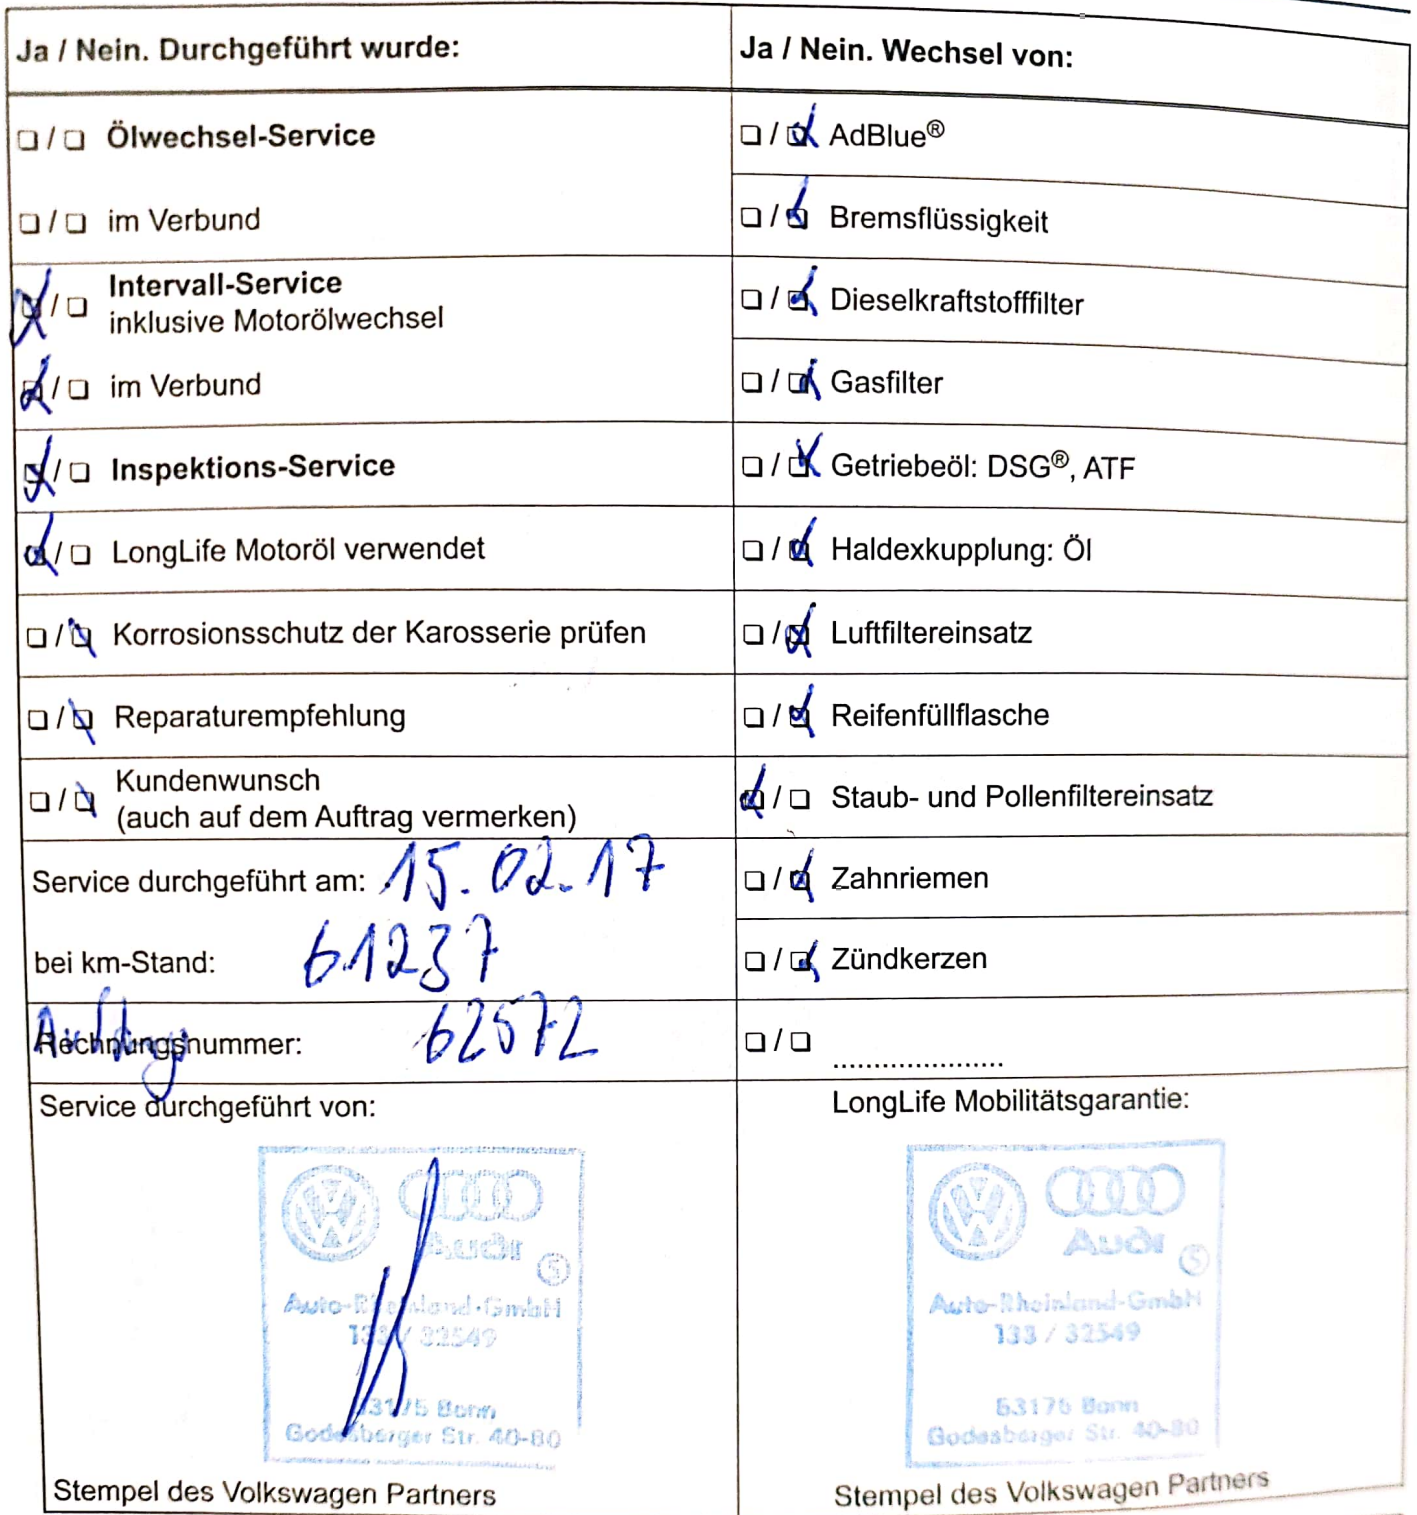 Ja / Nein. Durchgeführt wurde:
☐ / ☐ Ölwechsel-Service
☐ / ☐ im Verbund
☒ / ☐ Intervall-Service
inklusive Motorölwechsel
☒ / ☐ im Verbund
☒ / ☐ Inspektions-Service
☒ / ☐ LongLife Motoröl verwendet
☐ / ☒ Korrosionsschutz der Karosserie prüfen
☐ / ☒ Reparaturempfehlung
☐ / ☒ Kundenwunsch
(auch auf dem Auftrag vermerken)
Service durchgeführt am: 15.02.17
bei km-Stand: 61237
Auftrag
Rechnungsnummer: 62572
Service durchgeführt von:
Audi
S
Auto-Rheinland-GmbH
133 / 32549
53175 Bonn
Godesberger Str. 40-80
Stempel des Volkswagen Partners
Ja / Nein. Wechsel von:
☐ / ☒ AdBlue®
☐ / ☒ Bremsflüssigkeit
☐ / ☒ Dieselkraftstofffilter
☐ / ☒ Gasfilter
☐ / ☒ Getriebeöl: DSG®, ATF
☐ / ☒ Haldexkupplung: Öl
☐ / ☒ Luftfiltereinsatz
☐ / ☒ Reifenfüllflasche
☒ / ☐ Staub- und Pollenfiltereinsatz
☐ / ☒ Zahnriemen
☐ / ☒ Zündkerzen
☐ / ☐ .....................
LongLife Mobilitätsgarantie:
Audi
S
Auto-Rheinland-GmbH
133 / 32549
53175 Bonn
Godesberger Str. 40-80
Stempel des Volkswagen Partners